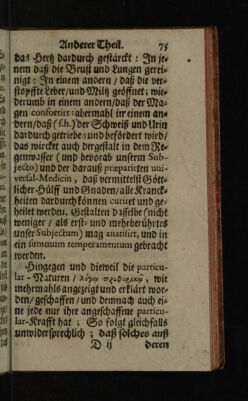 Anderer Theil. 75
das Hertz dardurch gestärckt : In je-
nem daß die Brust und Lungen gerei-
nigt : In einem andern / daß die ver-
stopffte Leber / und Miltz geöffnet; wie-
derumb in einem andern / daß der Ma-
gen confortirt: abermahl im einem an-
dern / daß (s.h.) der Schweiß und Urin
dardurch getrieben und befördert wird /
das wircket auch dergestalt in dem Re-
genwasser ( und bevorab unserm Sub-
jecto) und der darauß præparirten uni-
versal-Medicin / daß vermittelst Gött-
licher Hülff und Gnaden / alle Kranck-
heiten dardurch können curiret und ge-
heilet werden. Gestalten dasselbe (nicht
weniger / als erst- und mehrberührtes
unser Subjectum) mag anatisirt, und in
ein summum temperamentum gebracht
werden.
Hingegen und dieweil die particu-
lar - Naturen / wie
mehrmahls angezeigt und erklärt wor-
den / geschaffen / und demnach auch ei-
ne jede nur ihre angeschaffene particu-
lar-Krafft hat ; So folgt gleichfalls
unwidersprechlich ; daß solches auß
D ij deren